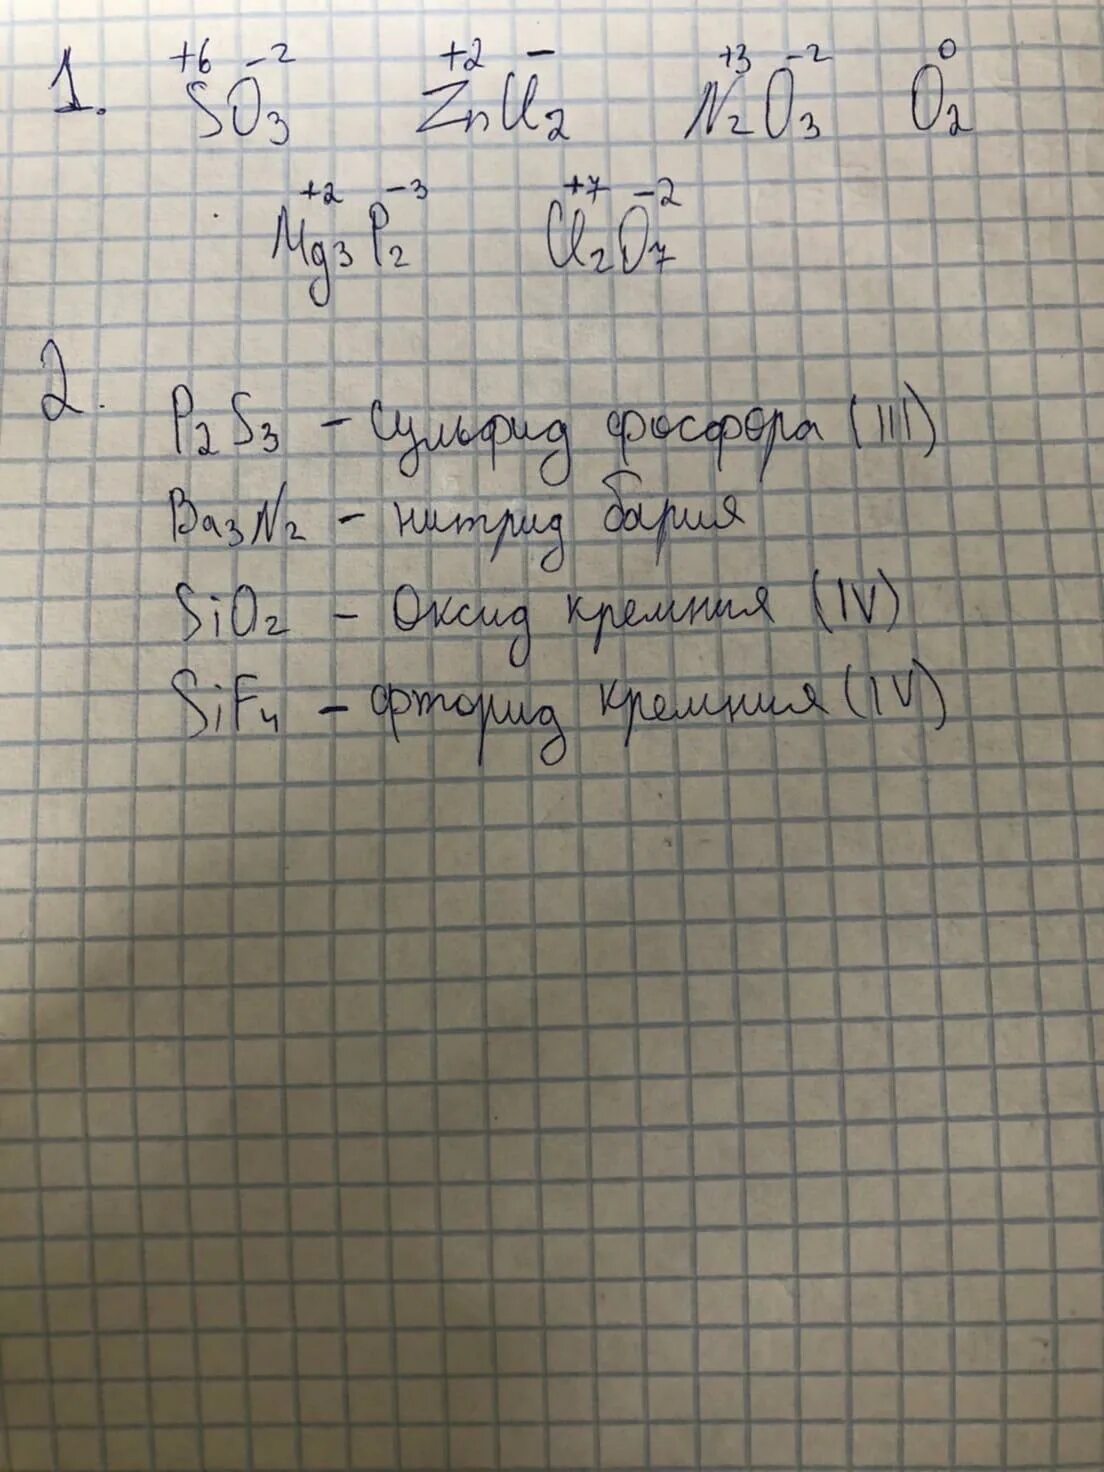 +6 -2 +2 - +3 -2 0
1. SO3 ZnCl2 N2O3 O2
+2 -3 +7 -2
Mg3P2 Cl2O7
2.
P2S3 - Сульфид фосфора (III)
Ba3N2 - нитрид бария
SiO2 - Оксид кремния (IV)
SiF4 - фторид кремния (IV)